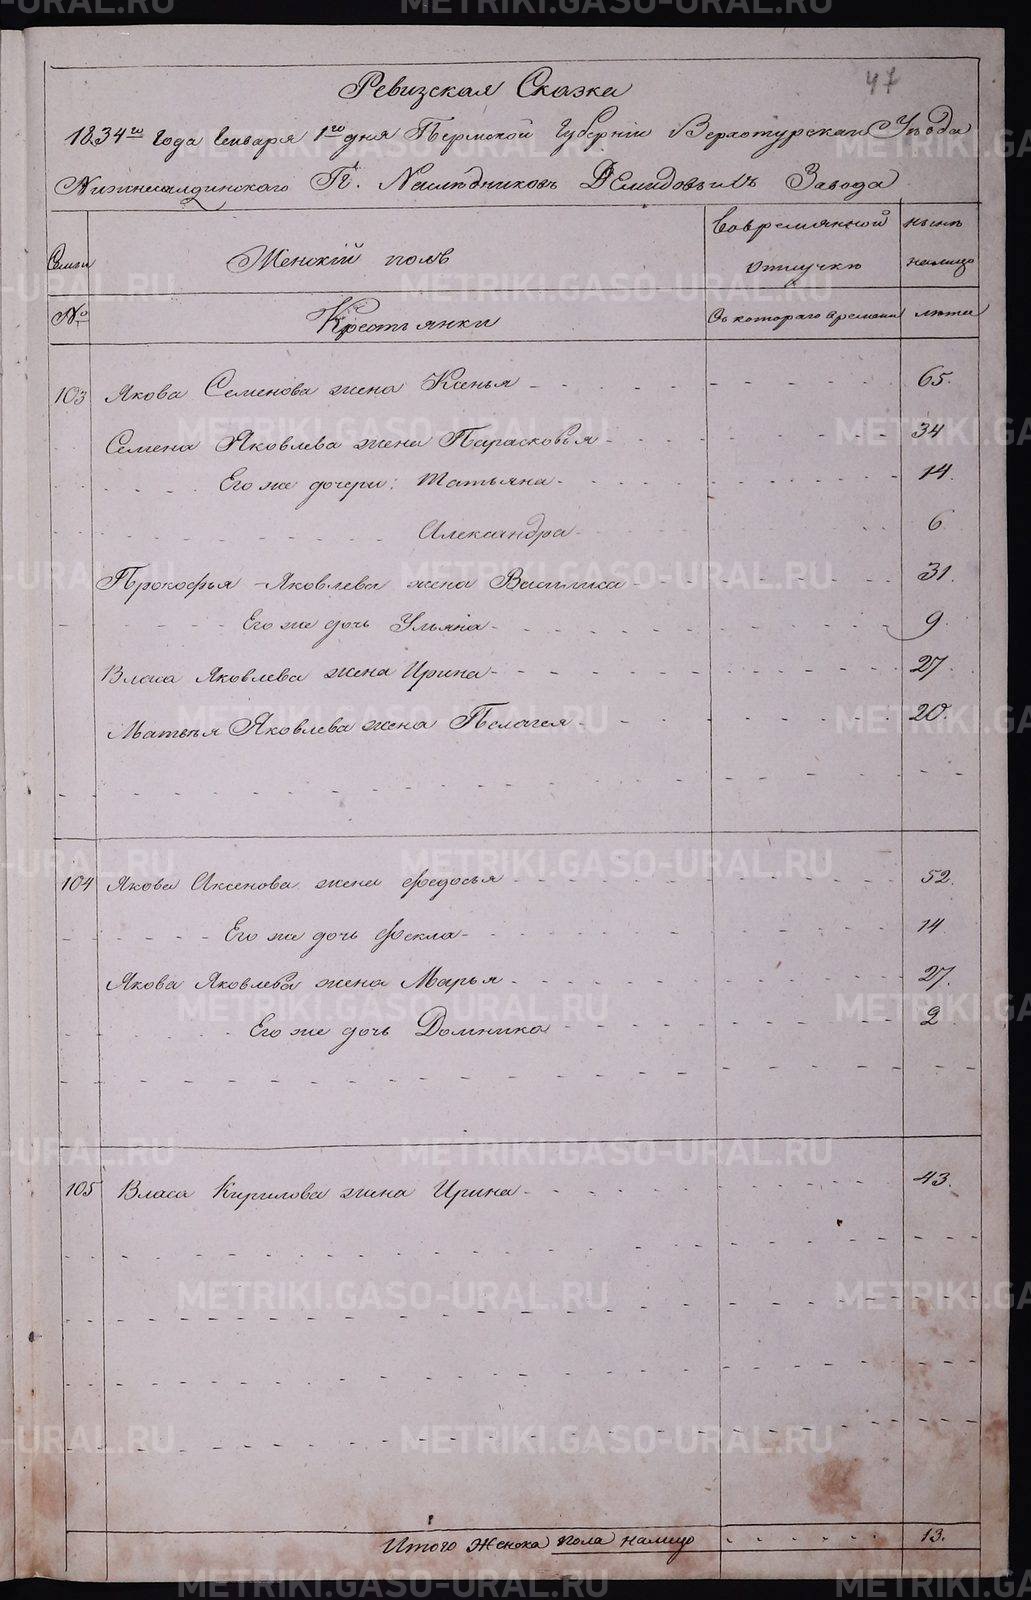 47
Ревизская Сказка
1834го Года Генваря 1го дня Пермской Губернiи Верхотурскаго Уезда
Нижнесалдинскаго Гг. Наследниковъ Демидовыхъ Завода
Семьи Женскiй полъ Вовременной отлучке ныне налицо
№ Крестьянки Съ котораго времени лета
103 Якова Семенова жена Ксенья 65.
Семена Яковлева жена Парасковья 34
Его же дочери: Татьяна 14.
Александра 6
Прокофья Яковлева жена Василиса 31.
Его же дочь Ульяна 9.
Власа Яковлева жена Ирина 27
Матвея Яковлева жена Пелагея 20.
104 Якова Аксенова жена Федосья 52.
Его же дочь Фекла 14
Якова Яковлева жена Марья 27.
Его же дочь Домника 2
105 Власа Кирилова жена Ирина 43.
Итого Женска пола налицо 13.
METRIKI.GASO-URAL.RU